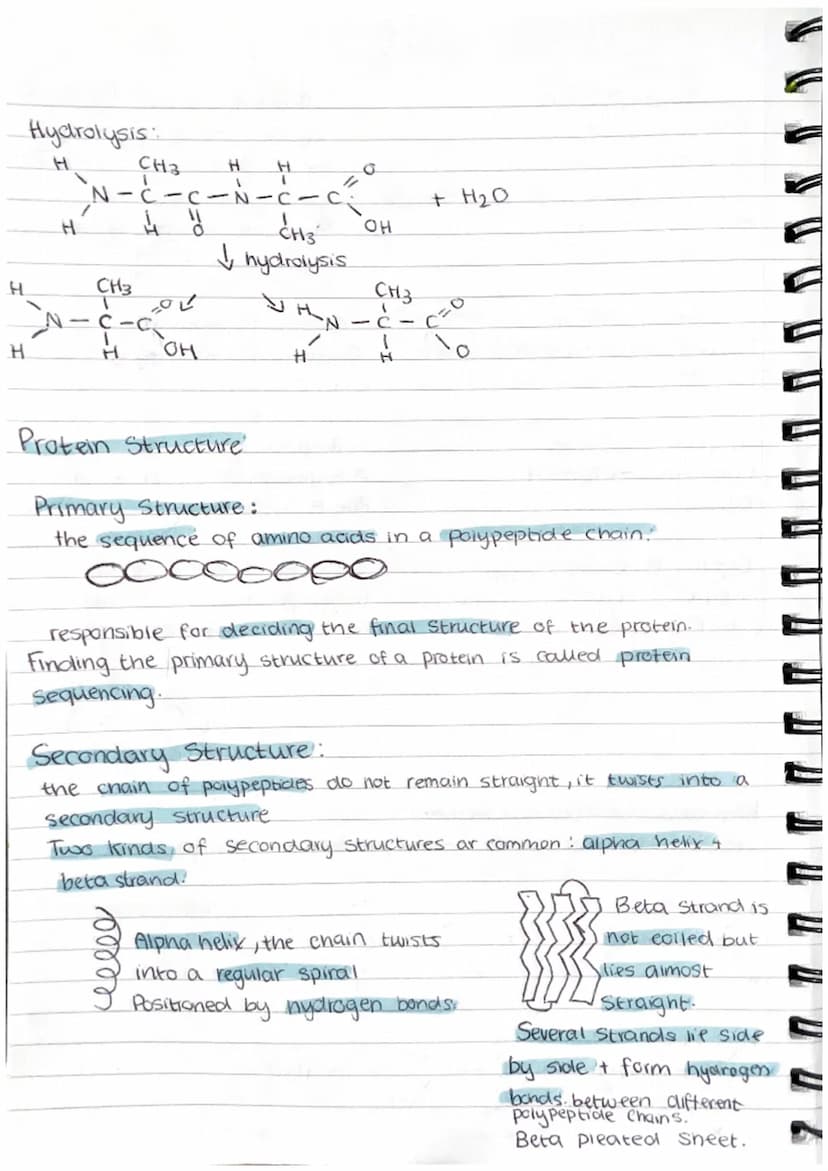 Hydrolysis:
H CH3 H H O
N - C - C - N - C - C + H2O
H H O CH3 OH
↓ hydrolysis
H CH3 O H CH3 O
N - C - C N - C - C
H H OH H H O
Protein Structure
Primary Structure:
the sequence of amino acids in a polypeptide chain.
responsible for deciding the final structure of the protein.
Finding the primary structure of a protein is called protein
sequencing.
Secondary Structure:
the chain of polypeptides do not remain straight, it twists into a
secondary structure
Two kinds of secondary structures ar common: alpha helix +
beta strand.
Alpha helix, the chain twists
into a regular spiral
Positioned by hydrogen bonds.
Beta strand is
not coiled but
lies almost
straight.
Several strands lie side
by side + form hydrogen
bonds between different
polypeptide chains.
Beta pleated sheet.